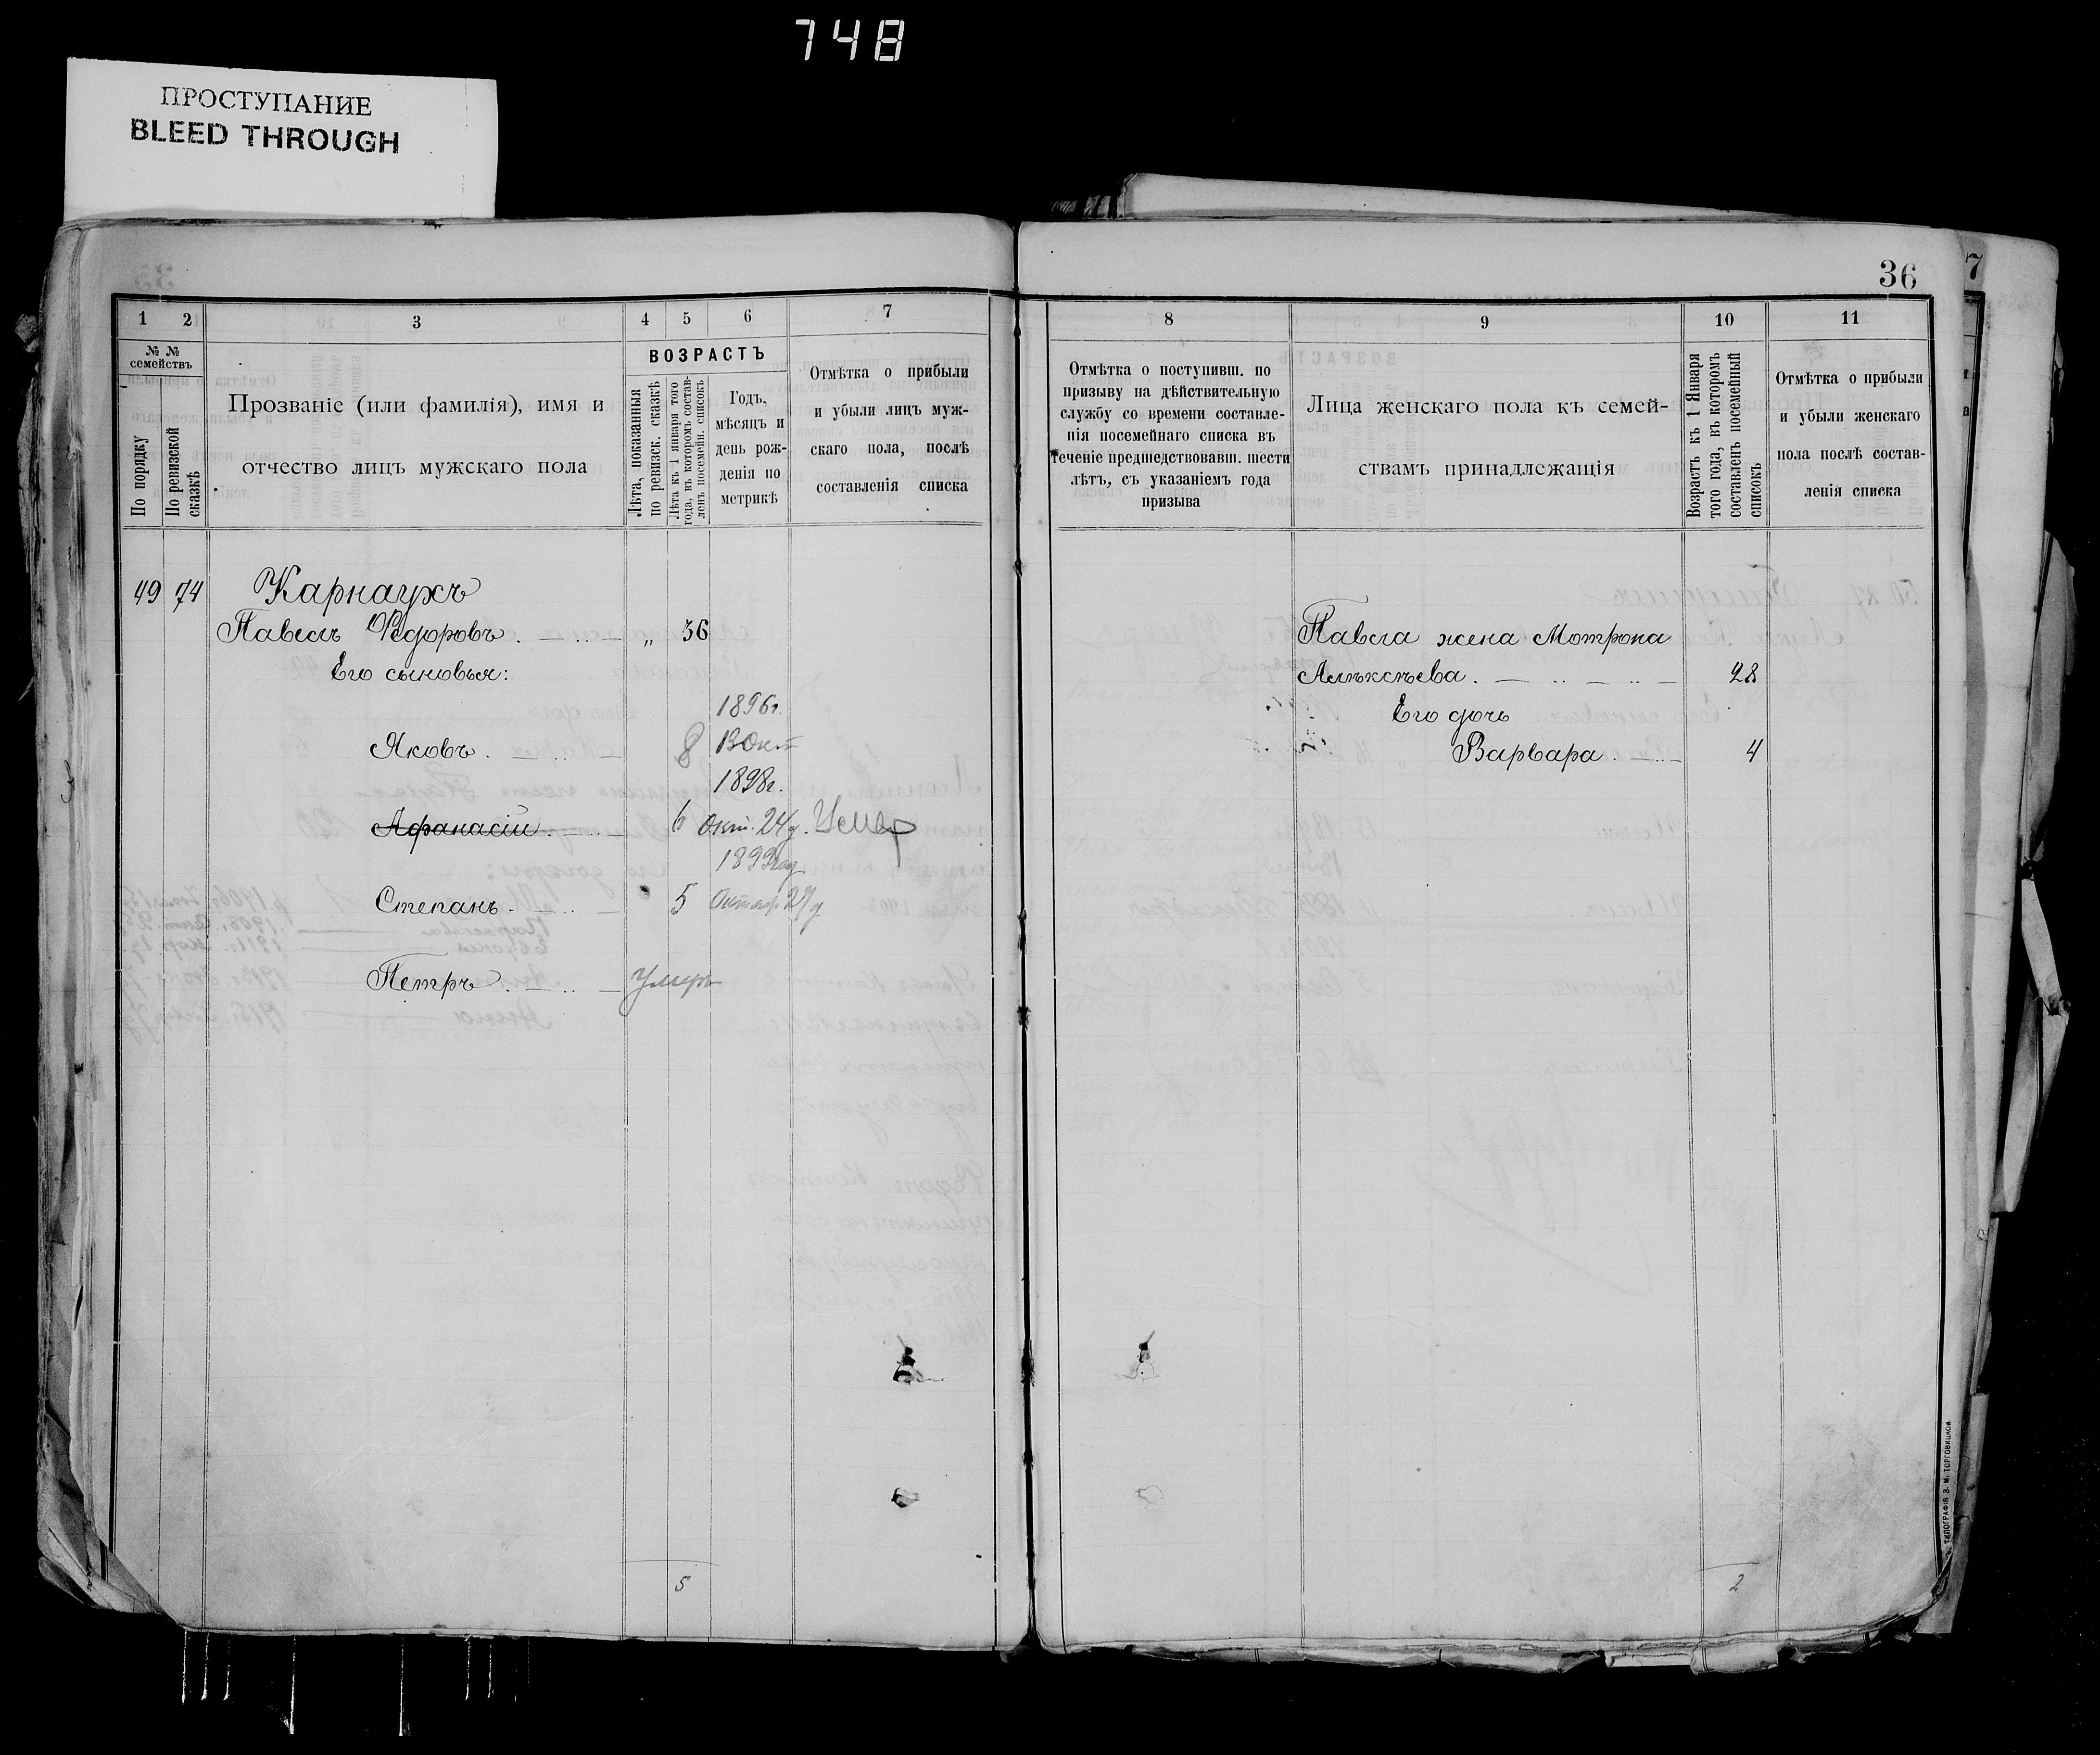 748
ПРОСТУПАНИЕ
BLEED THROUGH
36
7
1 2 3 4 5 6 7
№ № семействъ
По порядку
По ревизской сказкѣ
Прозваніе (или фамилія), имя и
отчество лицъ мужскаго пола
ВОЗРАСТЪ
Лѣта, показанныя по ревизск. сказкѣ
Лѣта къ 1 января того года, въ которомъ составленъ посемейн. списокъ
Годъ,
мѣсяцъ и
день рож-
денія по
метрикѣ
Отмѣтка о прибыли
и убыли лицъ муж-
скаго пола, послѣ
составленія списка
49 74 Карнаухъ
Павелъ Ѳедоровъ. „ 36
Его сыновья:
1896г.
Яковъ. 8 13 Окт
1898г.
Афанасій. 6 Окт. 24д. Умер
1899год
Степанъ. 5 Октяр 27д
Петръ. Умеръ
5
8 9 10 11
Отмѣтка о поступивш. по
призыву на дѣйствительную
службу со времени составле-
нія посемейнаго списка въ
теченіе предшедствовавш. шести
лѣтъ, съ указаніемъ года
призыва
Лица женскаго пола къ семей-
ствамъ принадлежащія
Возрастъ къ 1 Января
того года, въ которомъ
составленъ посемейный
списокъ
Отмѣтка о прибыли
и убыли женскаго
пола послѣ состав-
ленія списка
Павла жена Мотрона
Алѣксѣева. 28
Его дочь
Варвара. 4
2
ТИПОГРАФІЯ З. М. ТОРГОВИЦКОЙ